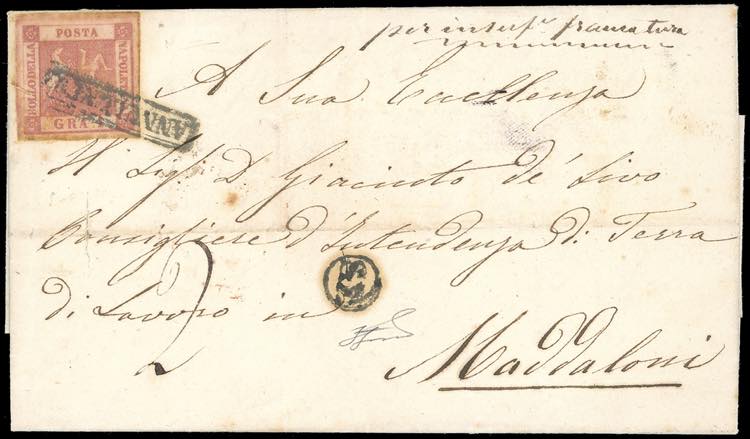 POSTA
NAPOLETANA
BOLLO DELLA
GRA
ANNULLATO
per insuf. francatura
A Sua Eccellenza
Il Sig. D. Giacinto de' Sivo
Consigliere d'Intendenza di Terra
di Lavoro in
2
Maddaloni